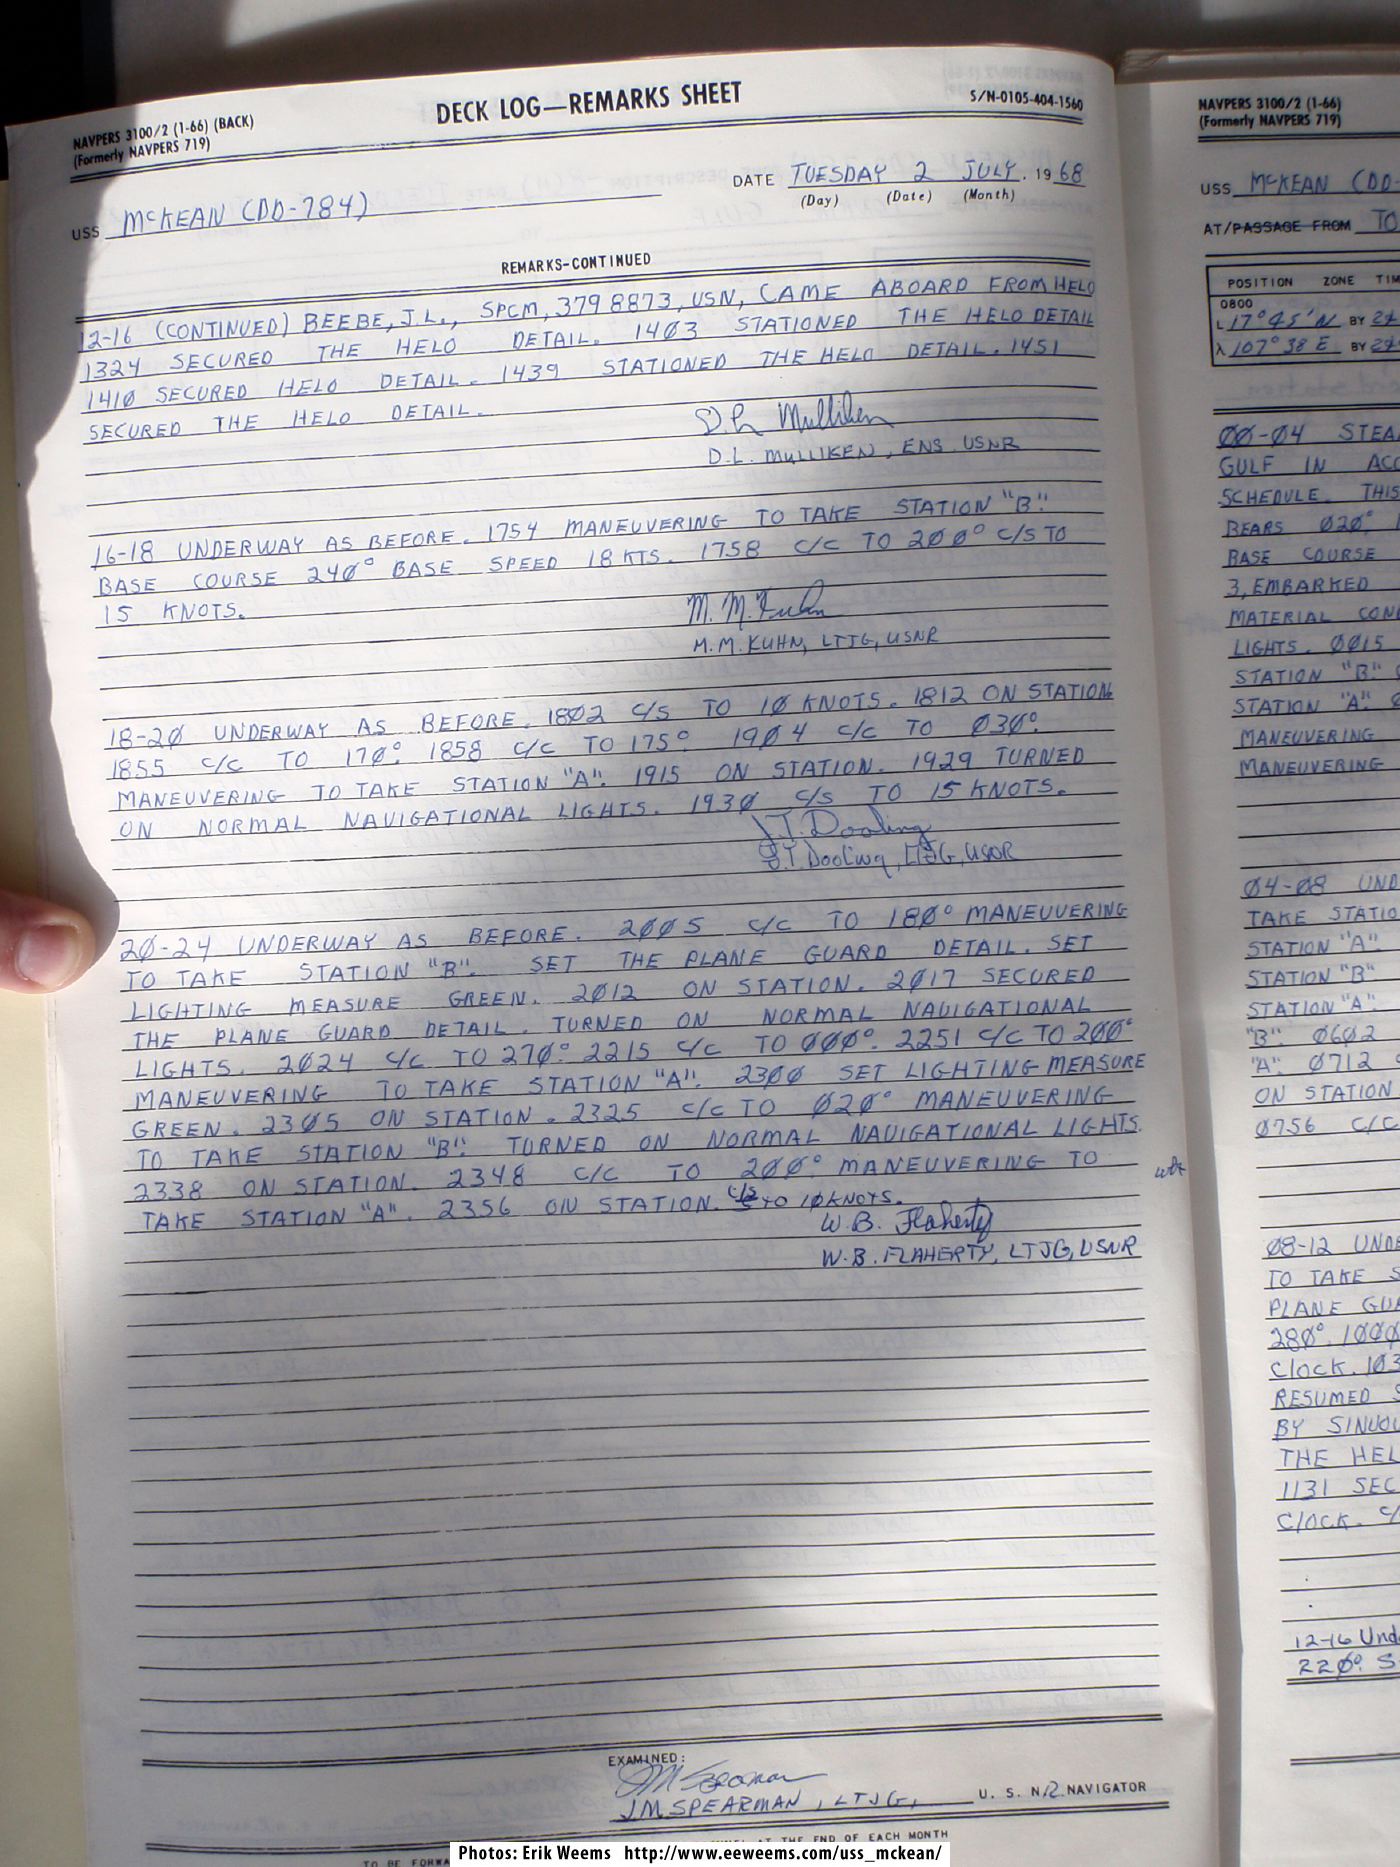 NAVPERS 3100/2 (1-66) (BACK)
(Formerly NAVPERS 719)
DECK LOG—REMARKS SHEET
S/N-0105-404-1560
USS McKEAN (DD-784)
DATE TUESDAY 2 JULY. 1968
(Day) (Date) (Month)
REMARKS-CONTINUED
12-16 (CONTINUED) BEEBE, J.L., SPCM, 379 8873, USN, CAME ABOARD FROM HELO
1324 SECURED THE HELO DETAIL. 14Ø3 STATIONED THE HELO DETAIL
141Ø SECURED HELO DETAIL. 1439 STATIONED THE HELO DETAIL. 1451
SECURED THE HELO DETAIL.
D.L. Mulliken
D.L. MULLIKEN, ENS. USNR
16-18 UNDERWAY AS BEFORE. 1754 MANEUVERING TO TAKE STATION "B".
BASE COURSE 24Ø° BASE SPEED 18 KTS. 1758 C/C TO 2ØØ° C/S TO
15 KNOTS.
M. M. Kuhn
M.M. KUHN, LTJG, USNR
18-2Ø UNDERWAY AS BEFORE. 18Ø2 C/S TO 1Ø KNOTS. 1812 ON STATION
1855 C/C TO 17Ø°. 1858 C/C TO 175° 19Ø4 C/C TO Ø3Ø°.
MANEUVERING TO TAKE STATION "A". 1915 ON STATION. 1929 TURNED
ON NORMAL NAVIGATIONAL LIGHTS. 193Ø C/S TO 15 KNOTS.
J.T. Dooling
J.T. Dooling, LTJG, USNR
2Ø-24 UNDERWAY AS BEFORE. 2ØØ5 C/C TO 18Ø° MANEUVERING
TO TAKE STATION "B". SET THE PLANE GUARD DETAIL. SET
LIGHTING MEASURE GREEN. 2Ø12 ON STATION. 2Ø17 SECURED
THE PLANE GUARD DETAIL. TURNED ON NORMAL NAVIGATIONAL
LIGHTS. 2Ø24 C/C TO 27Ø°. 2215 C/C TO ØØØ°. 2251 C/C TO 2ØØ°
MANEUVERING TO TAKE STATION "A". 23ØØ SET LIGHTING MEASURE
GREEN. 23Ø5 ON STATION. 2325 C/C TO Ø2Ø° MANEUVERING
TO TAKE STATION "B". TURNED ON NORMAL NAVIGATIONAL LIGHTS.
2338 ON STATION. 2348 C/C TO 2ØØ° MANEUVERING TO
TAKE STATION "A". 2356 ON STATION. C/S TO 1Ø KNOTS.
W.B. Flaherty
W.B. FLAHERTY, LTJG, USNR
EXAMINED:
JM Spearman
J.M. SPEARMAN, LTJG, U. S. N.R. NAVIGATOR
AT THE END OF EACH MONTH
TO BE
NAVPERS 3100/2 (1-66)
(Formerly NAVPERS 719)
USS McKEAN (DD-
AT/PASSAGE FROM TO
POSITION ZONE TIM
0800
L 17° 45' N BY
λ 107° 38 E BY
ØØ-Ø4 STEA
GULF IN ACC
SCHEDULE. THIS
BEARS Ø2Ø°
BASE COURSE
3, EMBARKED
MATERIAL CON
LIGHTS. ØØ15
STATION "B"
STATION "A".
MANEUVERING
MANEUVERING
Ø4-Ø8 UND
TAKE STATIO
STATION "A".
STATION "B"
STATION "A".
"B". Ø6Ø2
"A". Ø712
ON STATION
Ø756 C/C
Ø8-12 UNDE
TO TAKE S
PLANE GUA
28Ø°. 1ØØØ
Clock. 1Ø3
RESUMED S
BY SINUOU
THE HEL
1131 SEC
Clock.
12-16 Unde
22Ø°. S
Photos: Erik Weems http://www.eeweems.com/uss_mckean/